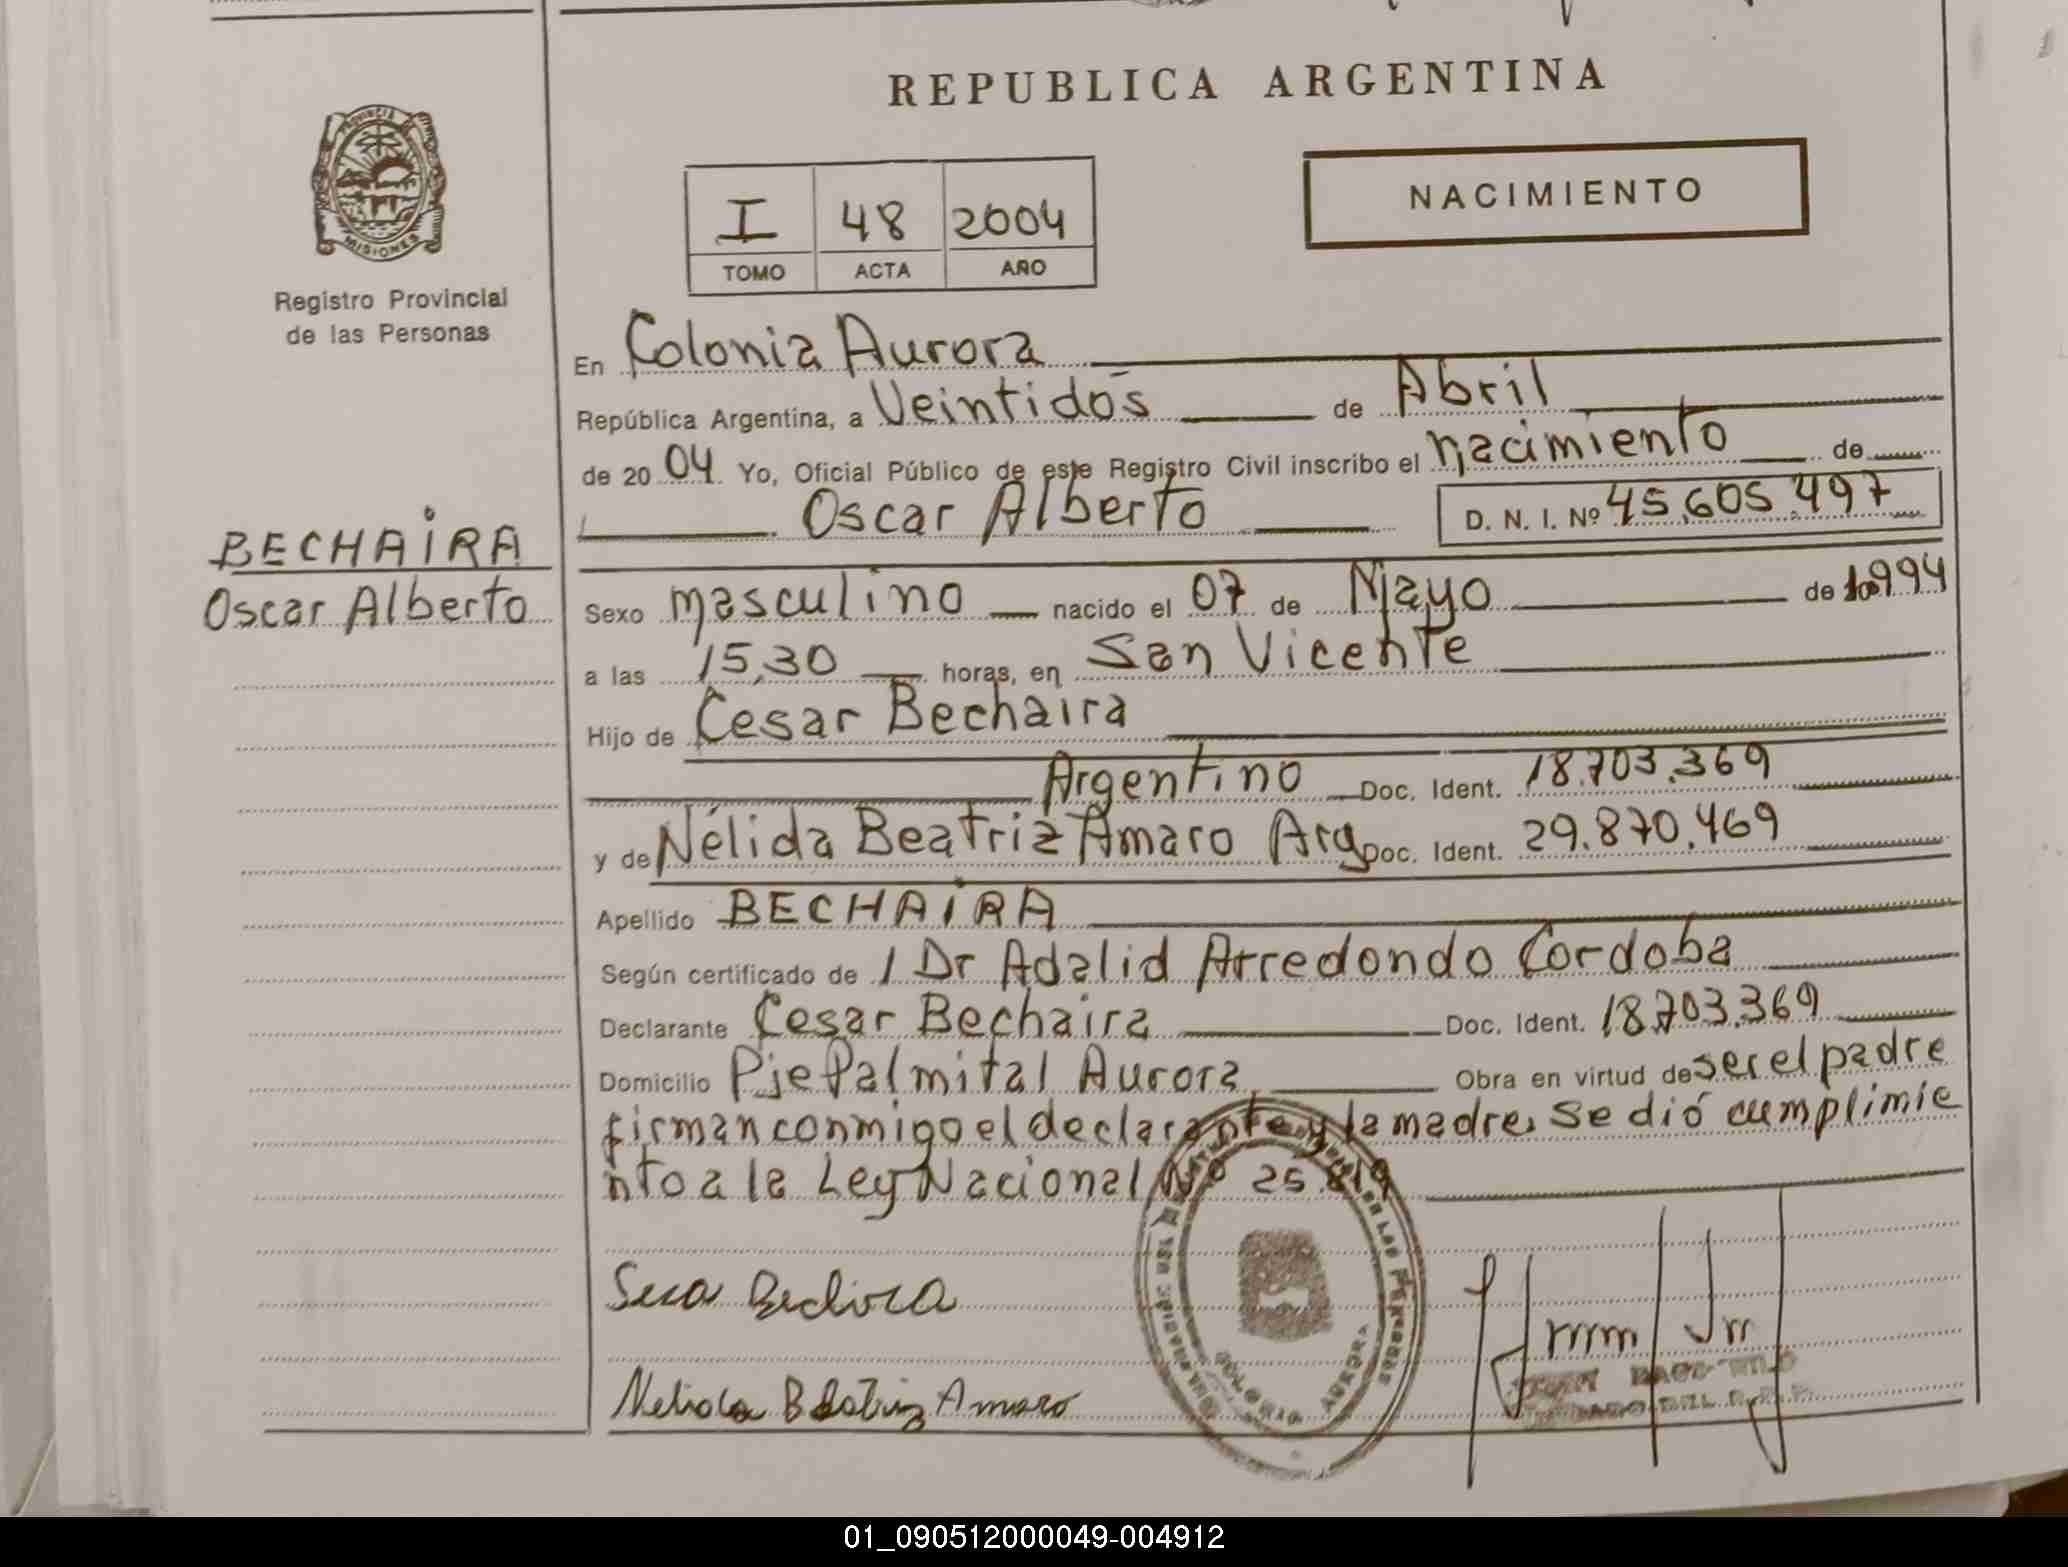 REPUBLICA ARGENTINA
PROVINCIA DE
MISIONES
Registro Provincial
de las Personas
NACIMIENTO
I 48 2004
TOMO ACTA AÑO
En Colonia Aurora
República Argentina, a Veintidós de Abril
de 2004 Yo, Oficial Público de este Registro Civil inscribo el nacimiento de
Oscar Alberto D. N. I. Nº 45.605.497
BECHAIRA
Oscar Alberto
Sexo masculino nacido el 07 de Mayo de 1994
a las 15,30 horas, en San Vicente
Hijo de Cesar Bechaira
Argentino Doc. Ident. 18.703.369
y de Nélida Beatriz Amaro Arg Doc. Ident. 29.870.469
Apellido BECHAIRA
Según certificado de 1 Dr Adalid Arredondo Cordoba
Declarante Cesar Bechaira Doc. Ident. 18.703.369
Domicilio Pje Palmital Aurora Obra en virtud de ser el padre
firman conmigo el declarante y la madre, Se dió cumplimie
nto a la Ley Nacional Nº 25.819
Nelida Beatriz Amaro
COLONIA AURORA
01_090512000049-004912